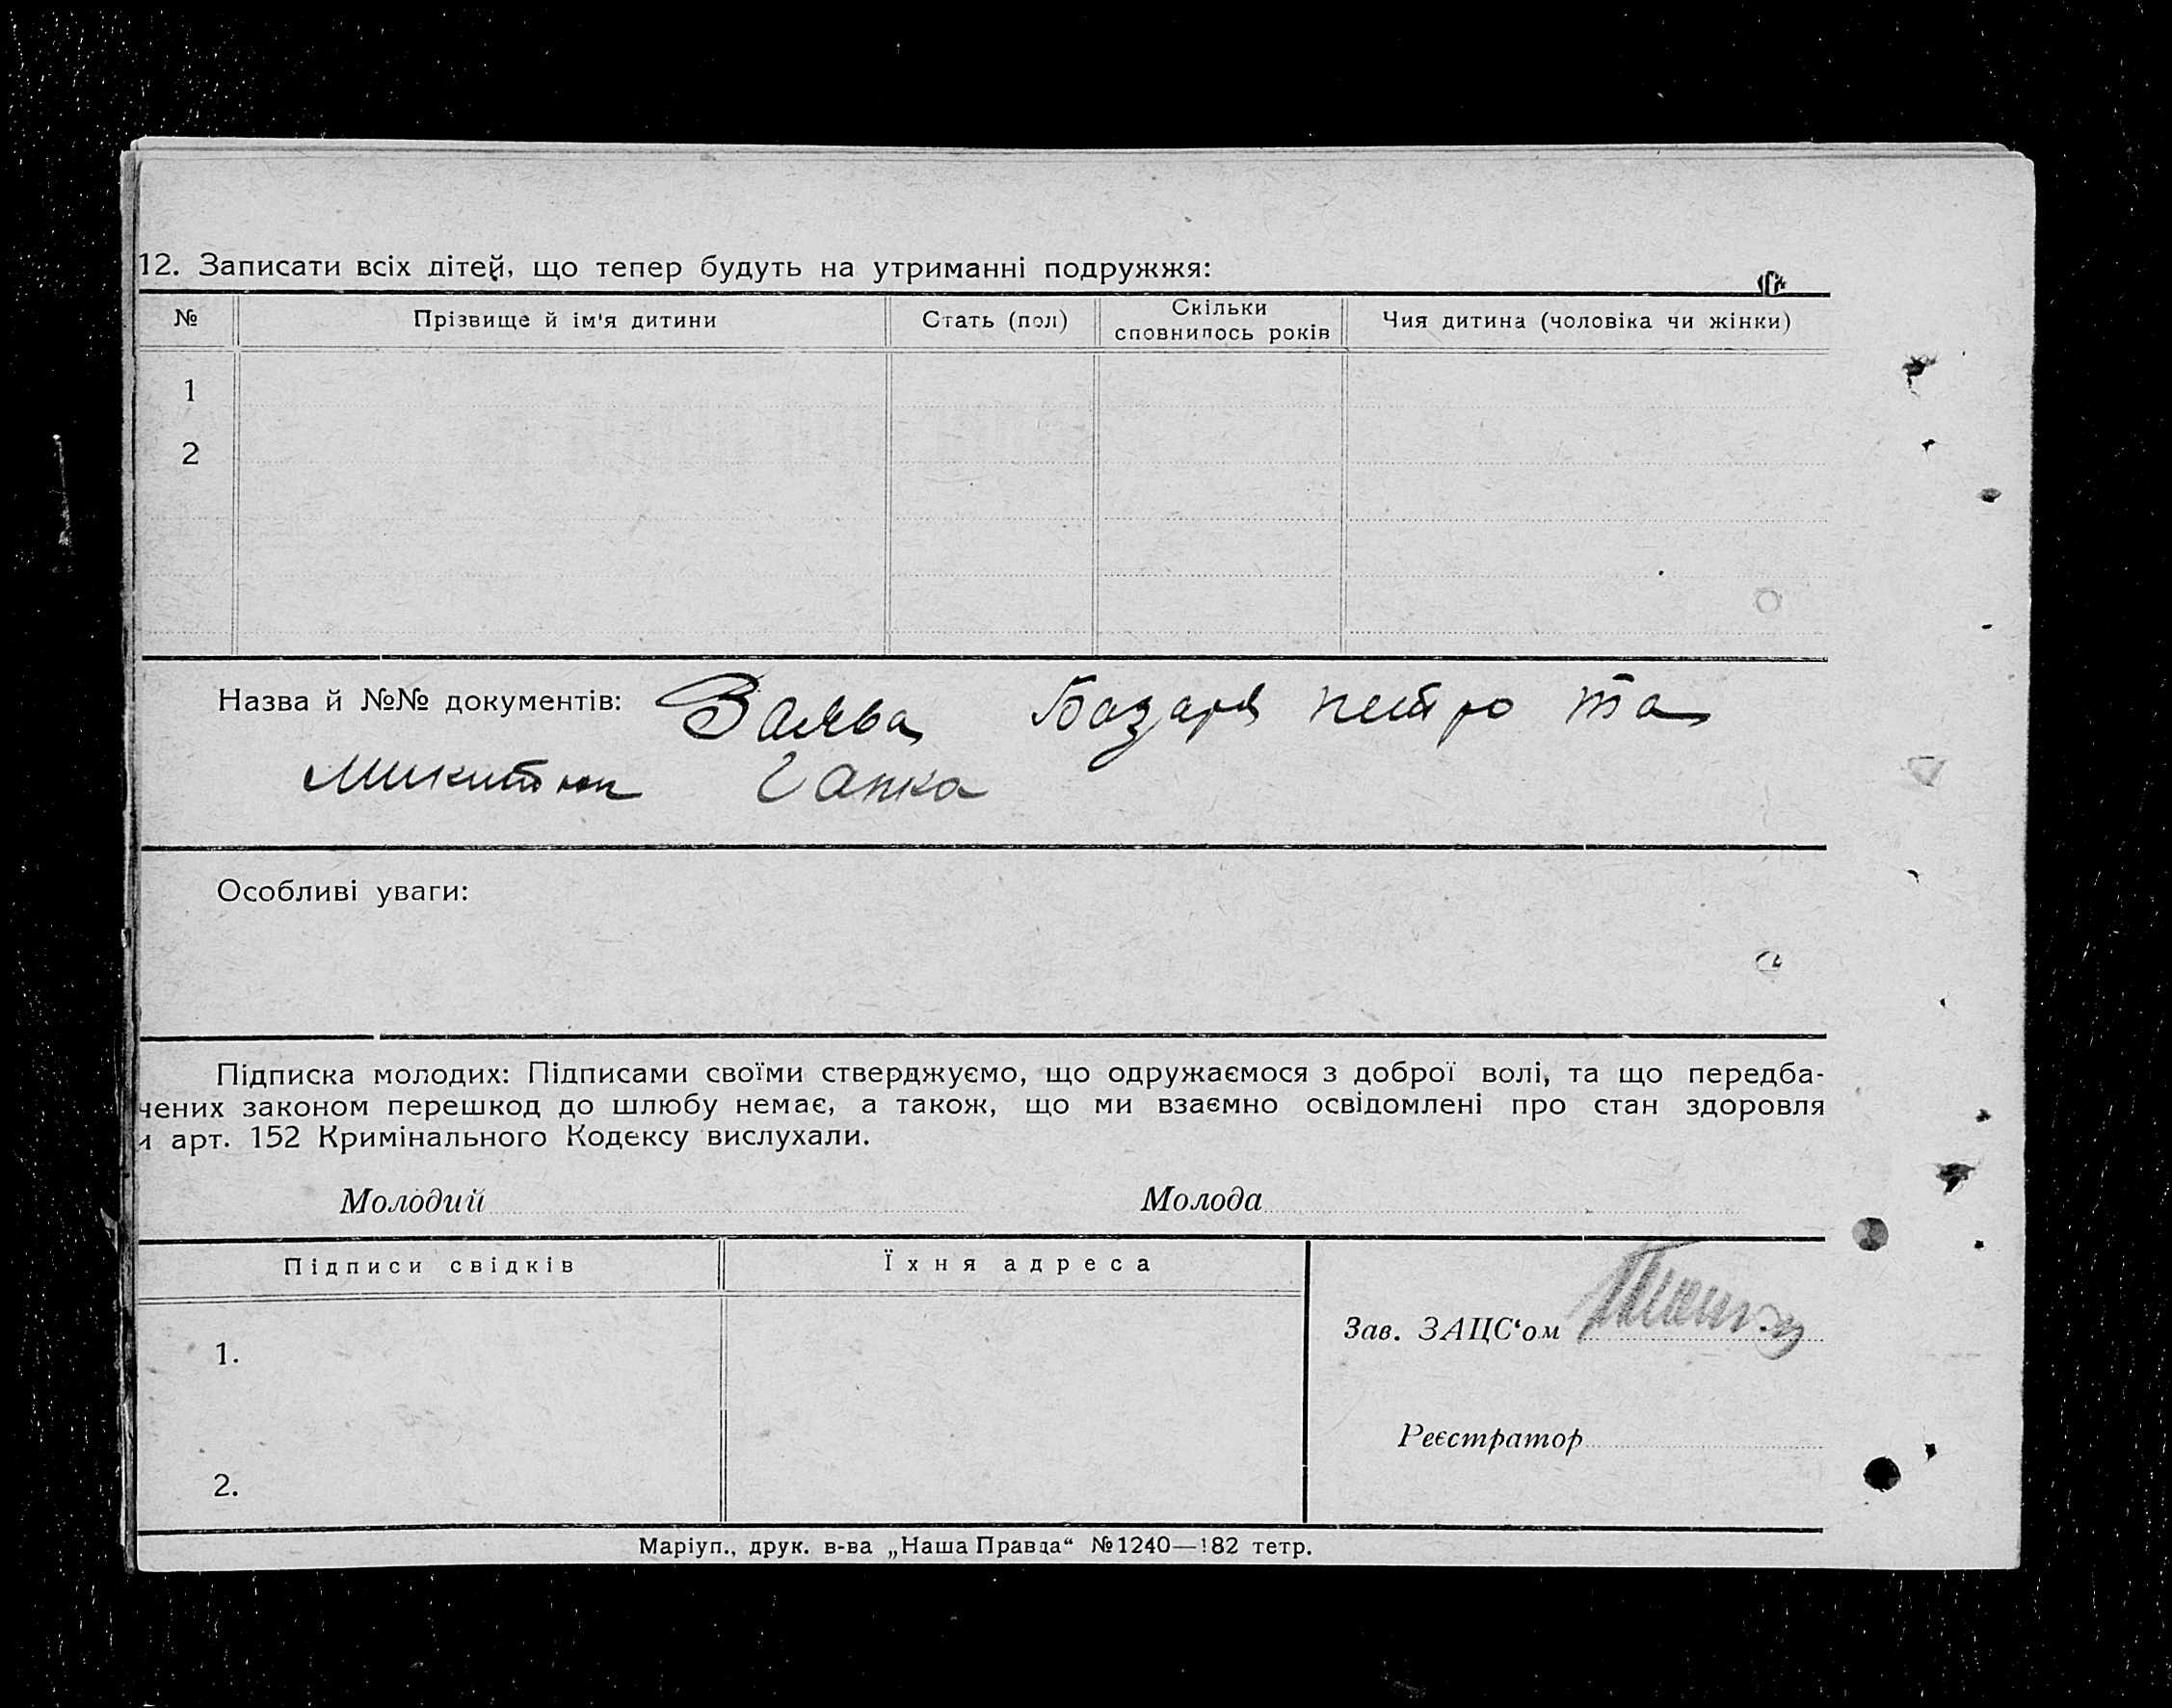 12. Записати всіх дітей, що тепер будуть на утриманні подружжя:
№ Прізвище й ім'я дитини Стать (пол) Скільки сповнилось років Чия дитина (чоловіка чи жінки)
1
2
Назва й №№ документів: Заява Базара петро та
Микитюк Гапка
Особливі уваги:
Підписка молодих: Підписами своїми стверджуємо, що одружаємося з доброї волі, та що передба-
чених законом перешкод до шлюбу немає, а також, що ми взаємно освідомлені про стан здоровля
и арт. 152 Кримінального Кодексу вислухали.
Молодий Молода
Підписи свідків Їхня адреса
Зав. ЗАЦС‘ом
1.
Реєстратор
2.
Маріуп., друк. в-ва „Наша Правда“ №1240—182 тетр.